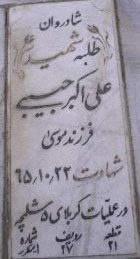 شادروان
طلبه شهید
علی اکبر حبیبی
فرزند موسی
شهادت ۲۲_۱۰_۶۵
در عملیات کربلای ۵ شلمچه
قطعه ردیف شماره
۲۱ ۱۷